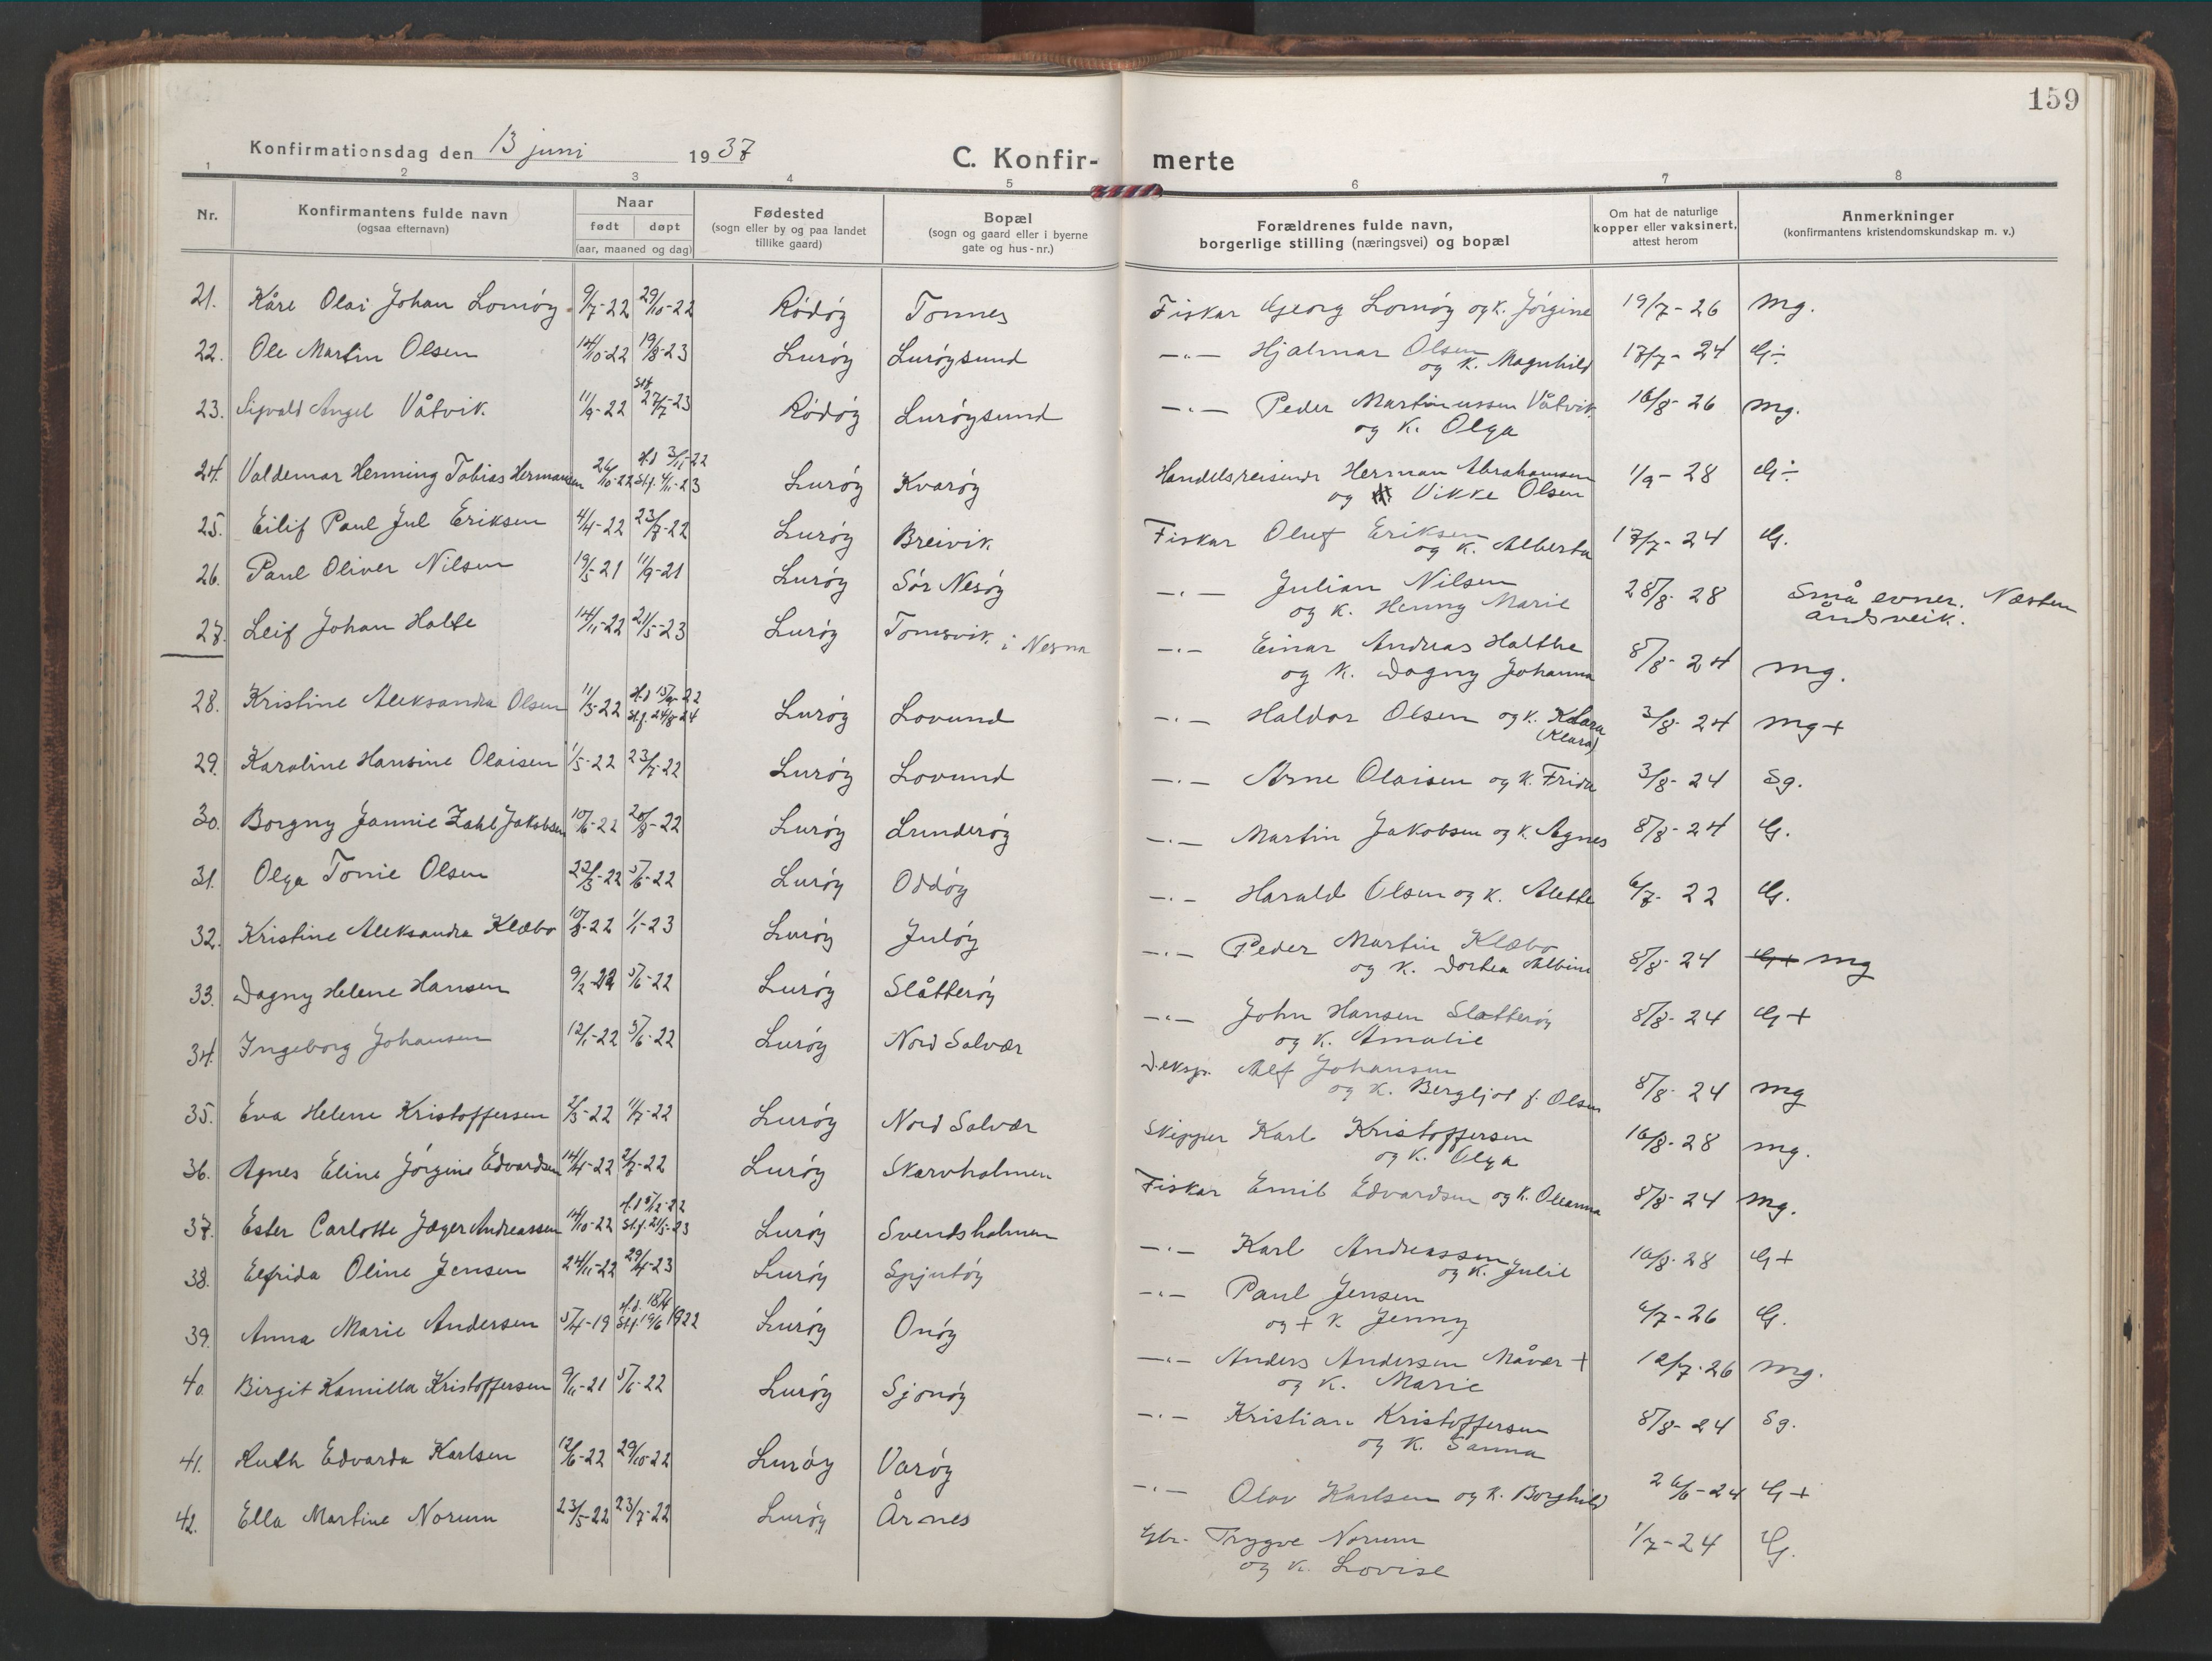 159
Konfirmationsdag den 13 juni 1937 C. Konfir- merte
1 2 3 4 5 6 7 8
Nr. Konfirmantens fulde navn (ogsaa efternavn) Naar født døpt (aar, maaned og dag) Fødested (sogn eller by og paa landet tillike gaard) Bopæl (sogn og gaard eller i byerne gate og hus-nr.) Forældrenes fulde navn, borgerlige stilling (næringsvei) og bopæl Om hat de naturlige kopper eller vaksinert, attest herom Anmerkninger (konfirmantens kristendomskundskap m. v.)
21. Kåre Olai Johan Lomøy 9/7-22 29/10-22 Rødøy Tonnes Fiskar Georg Lomøy og k. Jørgine 19/7-26 mg.
22. Ole Martin Olsen 14/10-22 19/8-23 Lurøy Lurøysund -"- Hjalmar Olsen og k. Magnhild 17/7-24 G÷
23. Sigvald Angel Våtvik 11/9-22 Stf 27/7-23 Rødøy Lurøysund -"- Peder Martinussen Våtvik og k. Olga 16/8-26 mg.
24. Valdemar Henning Tobias Hermansen 26/10-22 H.d 3/11-22 St.f. 4/11-23 Lurøy Kvarøy Handelsreisende Herman Abrahamsen og Vikke Olsen 1/9-28 G÷
25. Eilif Paul Jul Eriksen 4/4-22 23/7-22 Lurøy Breivik Fiskar Oluf Eriksen og k. Alberta 17/7-24 G.
26. Paul Oliver Nilsen 19/5-21 11/9-21 Lurøy Sør Nesøy -"- Julian Nilsen og k. Henny Marie 28/8-28 Små evner. Næsten åndsveik.
27. Leif Johan Halte 14/11-22 21/5-23 Lurøy Tomsvik i Nesna -"- Einar Andreas Halthe og k. Dagny Johanna 8/8-24 mg.
28. Kristine Aleksandra Olsen 11/3-22 H.d 15/4-22 St.f. 24/8-24 Lurøy Lovund -"- Haldor Olsen og k. Klara (Klara) 3/8-24 mg+
29. Karoline Hansine Olaisen 1/5-22 23/7-22 Lurøy Lovund -"- Arne Olaisen og k. Frida 3/8-24 Sg.
30. Borgny Jannie Zahl Jakobsen 10/6-22 20/8-22 Lurøy Lunderøy -"- Martin Jakobsen og k. Agnes 8/8-24 G.
31. Olga Tonie Olsen 22/3-22 5/6-22 Lurøy Oddøy -"- Harald Olsen og k. Alette 6/7-22 G.
32. Kristine Aleksandra Klæbo 10/8-22 1/1-23 Lurøy Juløy -"- Peder Martin Klæbo og k. Dortea Albine 8/8-24 G+ mg
33. Dagny Helene Hansen 9/2-22 5/6-22 Lurøy Slåtterøy -"- John Hansen Slatterøy og k. Amalie 8/8-24 G+
34. Ingeborg Johansen 12/1-22 5/6-22 Lurøy Nord Solvær D.eksp. Alf Johansen og k. Bergljot f. Olsen 8/8-24 mg
35. Eva Helene Kristoffersen 2/3-22 11/7-22 Lurøy Nord Solvær Skipper Karl Kristoffersen og k. Olga 16/8-28 mg.
36. Agnes Eline Jørgine Edvardsen 14/4-22 2/7-22 Lurøy Skarvholmen Fiskar Emil Edvardsen og k. Oleanna 8/8-24 mg.
37. Ester Carlotte Jæger Andreassen 14/10-22 H.d 5/12-22 St.f. 21/5-23 Lurøy Svendsholmen -"- Karl Andreassen og k. Julie 16/8-28 G+
38. Elfrida Oline Jensen 24/11-22 29/4-23 Lurøy Spjutøy -"- Paul Jensen og + k Jenny 6/7-26 G.
39. Anna Marie Andersen 5/4-19 H.d. 18/4 St.f. 19/6 1922 Lurøy Onøy -"- Anders Andersen Måvær + og k. Marie 12/7-26 mg.
40. Birgit Kamilla Kristoffersen 9/11-21 5/6-22 Lurøy Sjonøy -"- Kristian Kristoffersen og k. Sanna 8/8-24 Sg.
41. Ruth Edvarda Karlsen 12/6-22 29/10-22 Lurøy Varøy -"- Olav Karlsen og k. Borghild 26/6-24 G+
42. Ella Martine Norum 23/5-22 23/7-22 Lurøy Årnes Gbr. Trygve Norum og k. Lovise 1/7-24 G.